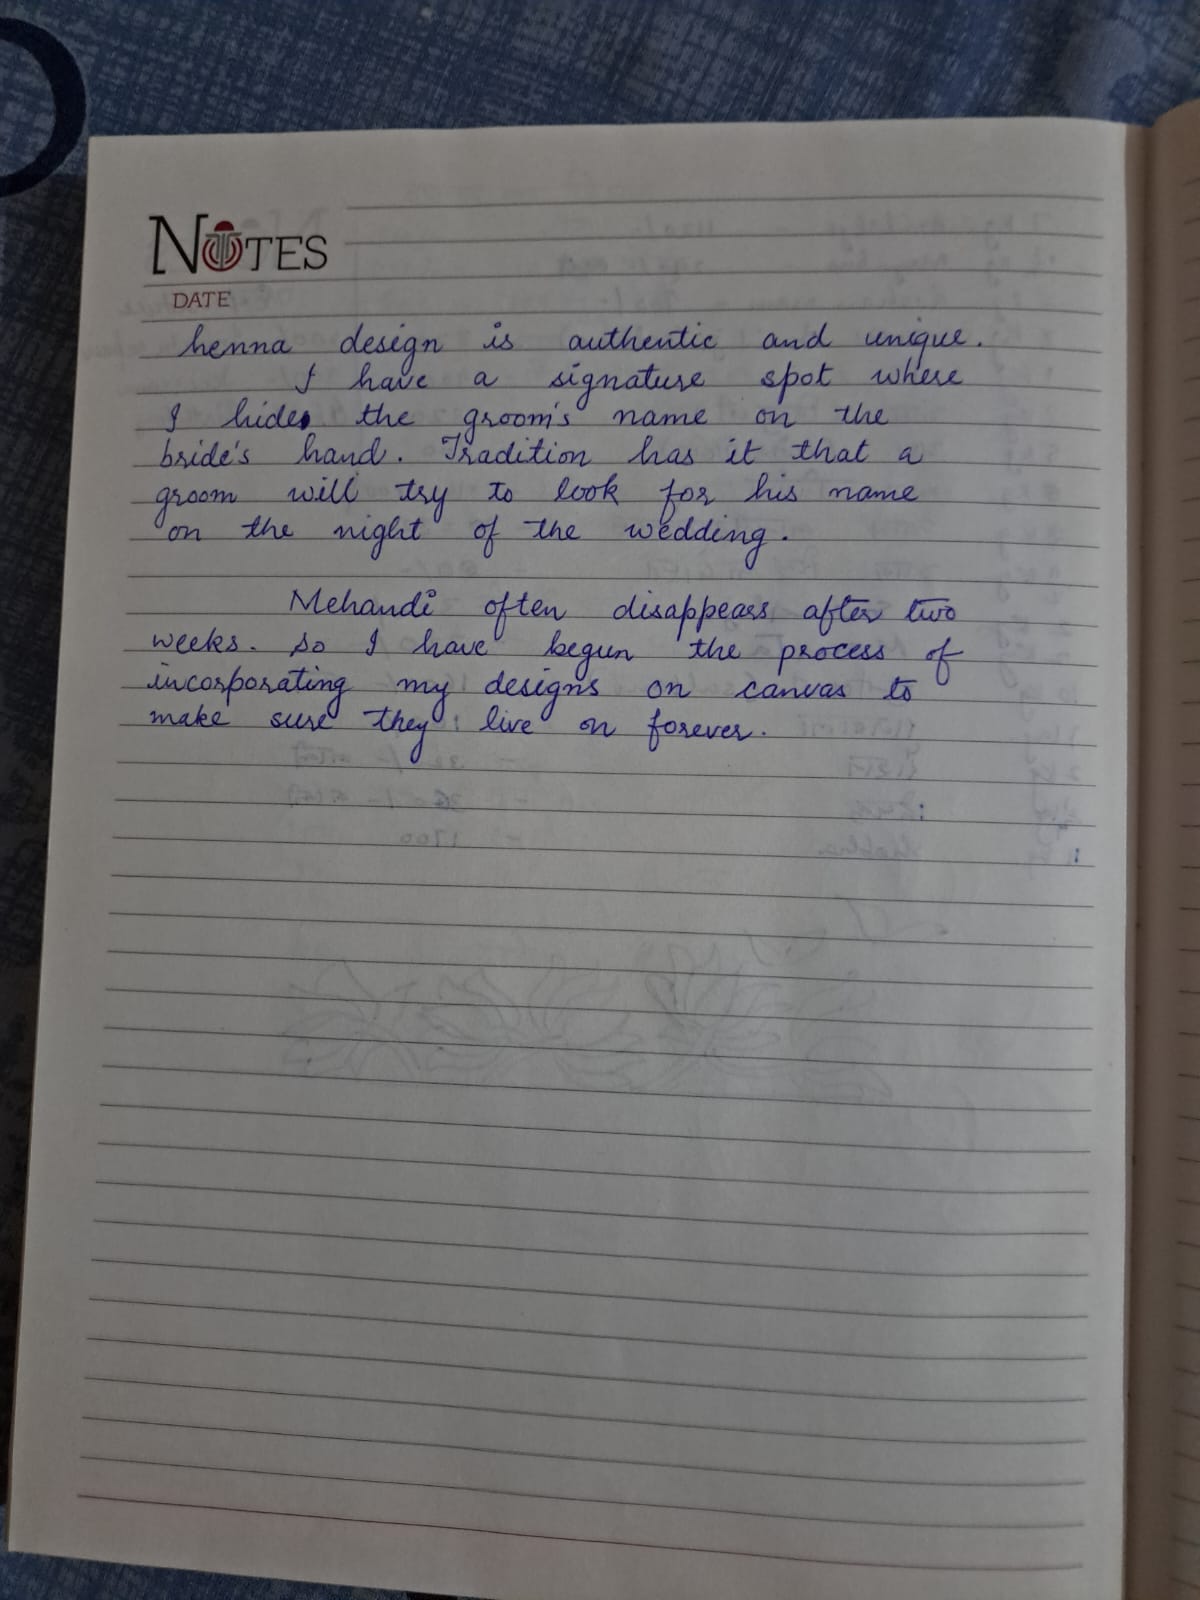 NOTES
DATE
henna design is authentic and unique.
I have a signature spot where
I hide the groom's name on the
bride's hand. Tradition has it that a
groom will try to look for his name
on the night of the wedding.
Mehandi often disappears after two
weeks. So I have begun the process of
incorporating my designs on canvas to
make sure they live on forever.